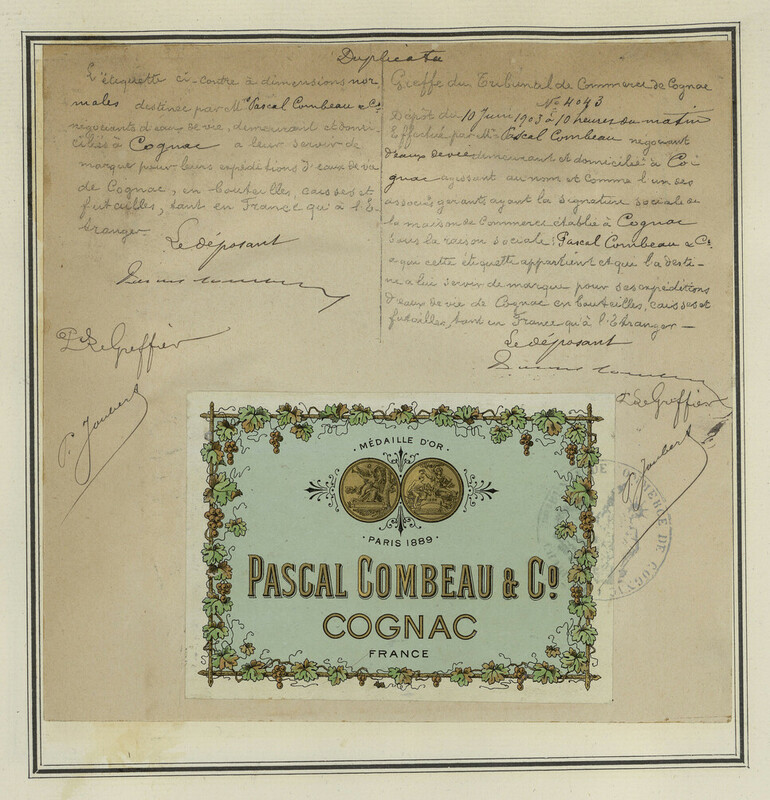 Duplicata
L'étiquette ci-contre à dimensions nor
males destinée par Mrs Pascal Combeau & Co
négociants d'eaux de vie, demeurant et domi-
ciliés à Cognac a leur servir de
marque pour leurs expéditions d'eaux de vie
de Cognac, en bouteilles, caisses et
futailles, tant en France qu'à l'É-
tranger.
Le déposant
Pr Le Greffier
P. Joubert
Greffe du Tribunal de Commerce de Cognac
No 4043
Dépôt du 10 Juin 1903 à 10 heures du matin
Effectué par Mr Pascal Combeau négociant
d'eaux de vie demeurant et domicilié à Co
gnac agissant au nom et comme l'un des
associés gérants ayant la signature sociale de
la maison de Commerce établie à Cognac
sous la raison sociale: Pascal Combeau & Co
à qui cette étiquette appartient et qui l'a desti-
née à lui servir de marque pour ses expéditions
d'eaux de vie de Cognac en bouteilles, caisses et
futailles, tant en France qu'à l'Étranger —
Le déposant
Pr Le Greffier
P. Joubert
DE COMMERCE DE COGNAC
· MÉDAILLE D'OR ·
· PARIS 1889 ·
PASCAL COMBEAU & Co
COGNAC
FRANCE